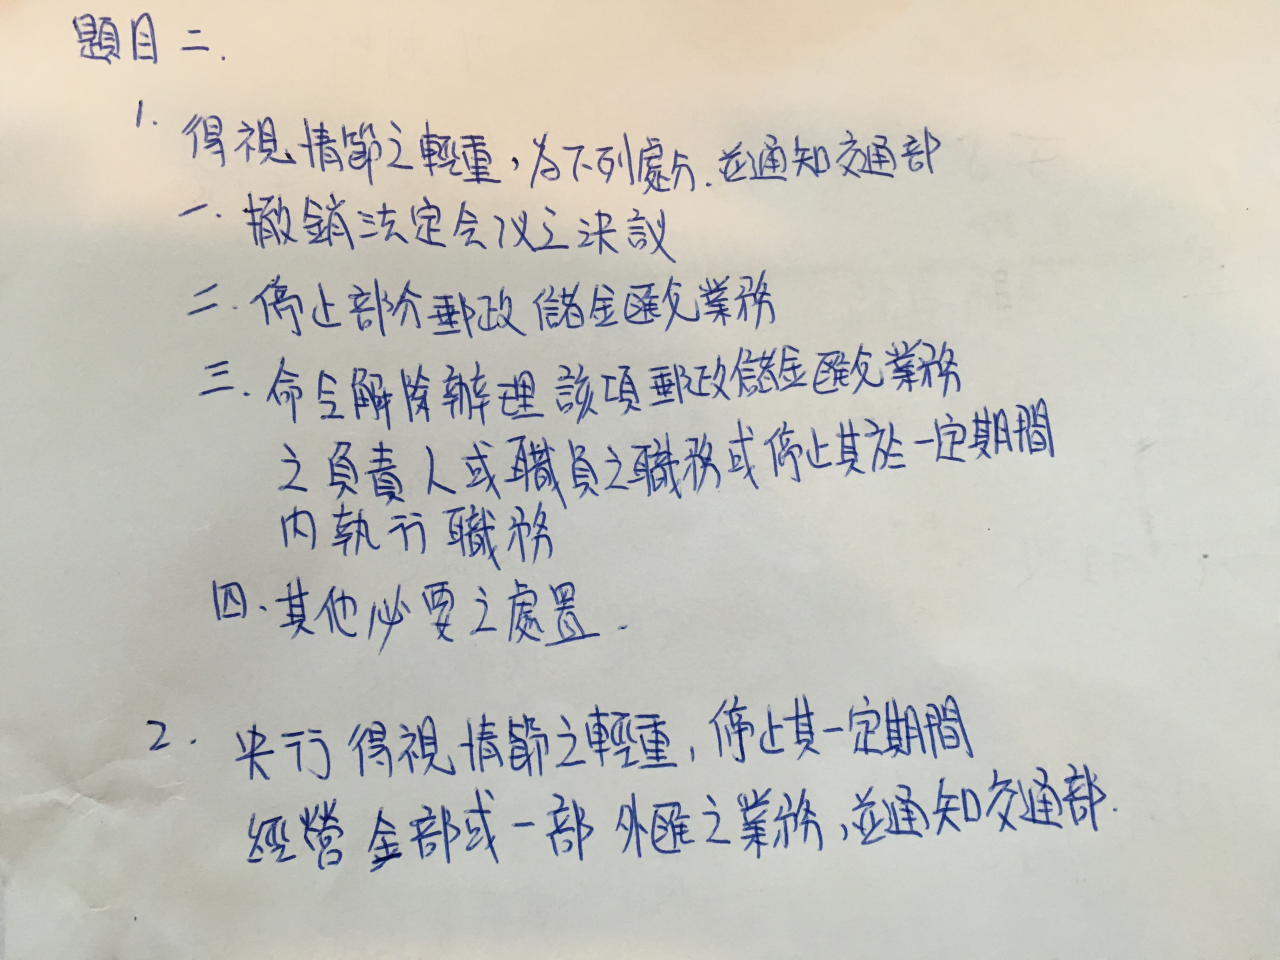 題目 二.
1. 得視情節之輕重,為下列處分.並通知交通部
一. 撤銷法定会议之決議
二. 停止部分郵政儲金匯兌業務
三. 命令解除辦理該項郵政儲金匯兌業務
之負責人或職員之職務或停止其於一定期間
內執行職務
四. 其他必要之處置.
2. 央行得視情節之輕重,停止其一定期間
經營全部或一部外匯之業務,並通知交通部.